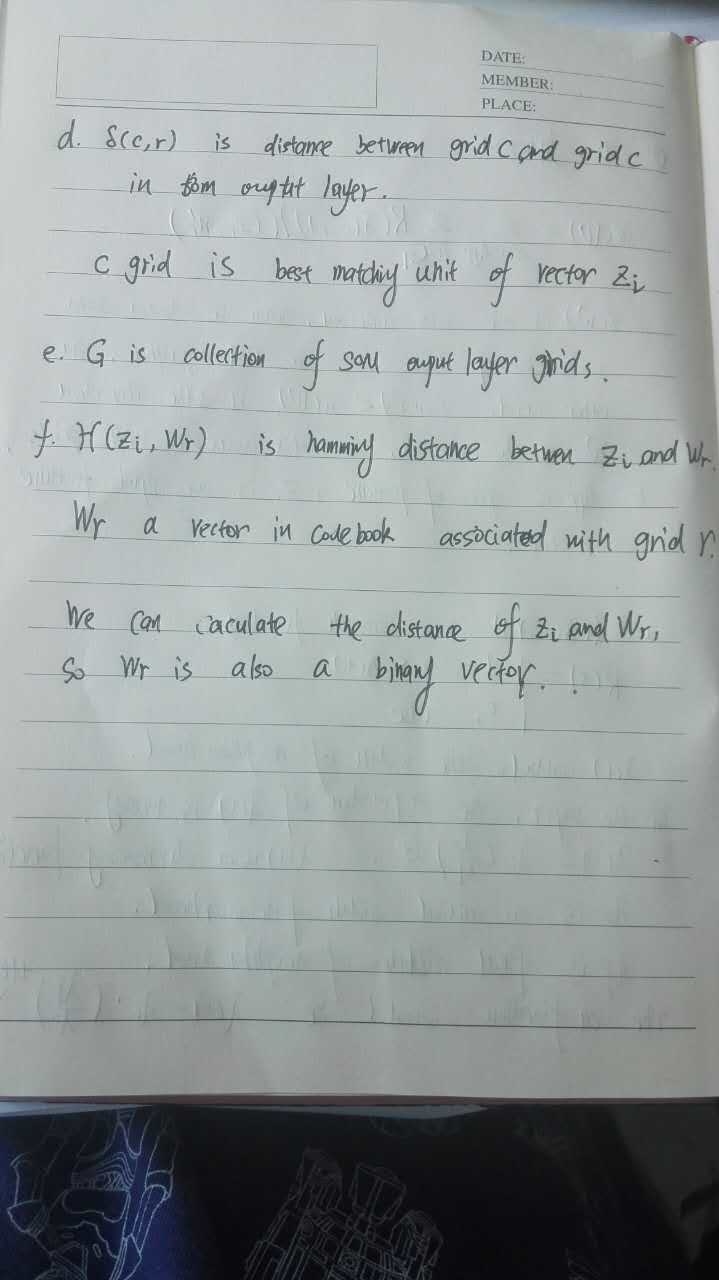 DATE:
MEMBER:
PLACE:
d. δ(c,r) is distance between grid c and grid c
in som ouptut layer.
c grid is best matching unit of vector Zi
e. G is collection of SOM ouput layer grids.
f. H(Zi, Wr) is hamming distance betwen Zi and Wr.
Wr a vector in codebook associated with grid r.
We can caculate the distance of Zi and Wr,
So Wr is also a binary vector.